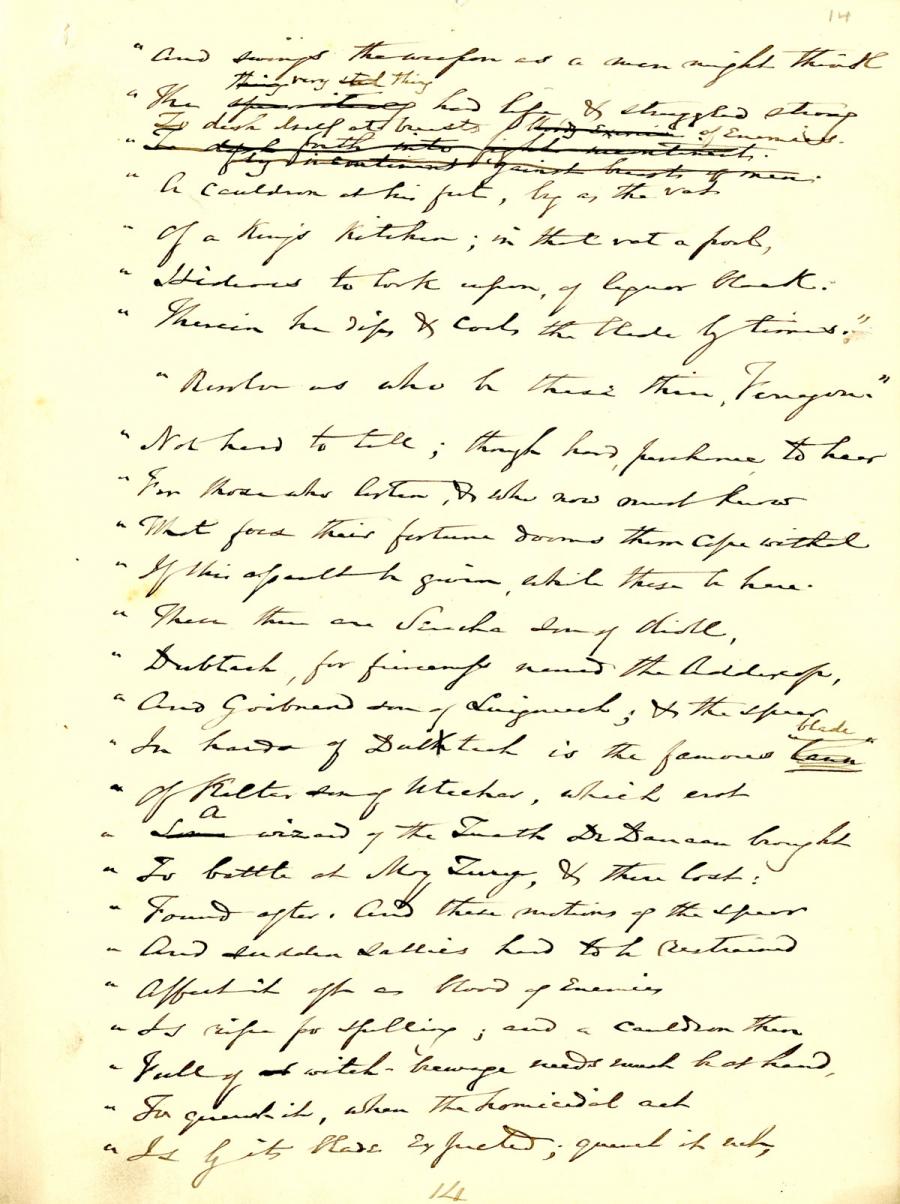 14
" And swings the weapon as a man might think
thing very steel thing
" The spear itself had life & struggled strong
To dash itself at breasts of Enemies.
" To forth into
fly incontinent against breasts of men.
" A cauldron at his feet, big as the vat
" Of a King's Kitchen; in that vat a pool,
" Hideous to look upon, of liquor black:
" Therein he dips & cools the blade by times."
" Resolve us who be these three, Ferragon."
" Not hard to tell; though hard, perchance, to hear
" For those who listen, & who now must know
" What foes their fortune dooms them cope withal
" If this assault be given, while these be here.
" These three are Sencha son of Olioll,
" Dubtach, for fierceness named the Addercop,
" And Goibnend son of Luigneech; & the spear
blade
" In hands of Dubtach is the famous "Lann"
" Of Kelter son of Utechar, which erst
a
" Some wizard of the Tuath De Danaan brought
" To battle at Moy Tury, & there lost:
" Found after. And these motions of the spear
" And sudden sallies hard to be restrained
" Affect it oft as blood of Enemies
" Is ripe for spilling; and a cauldron then
" Full of witch-brewage needs must be at hand,
" To quench it, when the homicidal act
" Is by its blade Expected; quench it not,
14